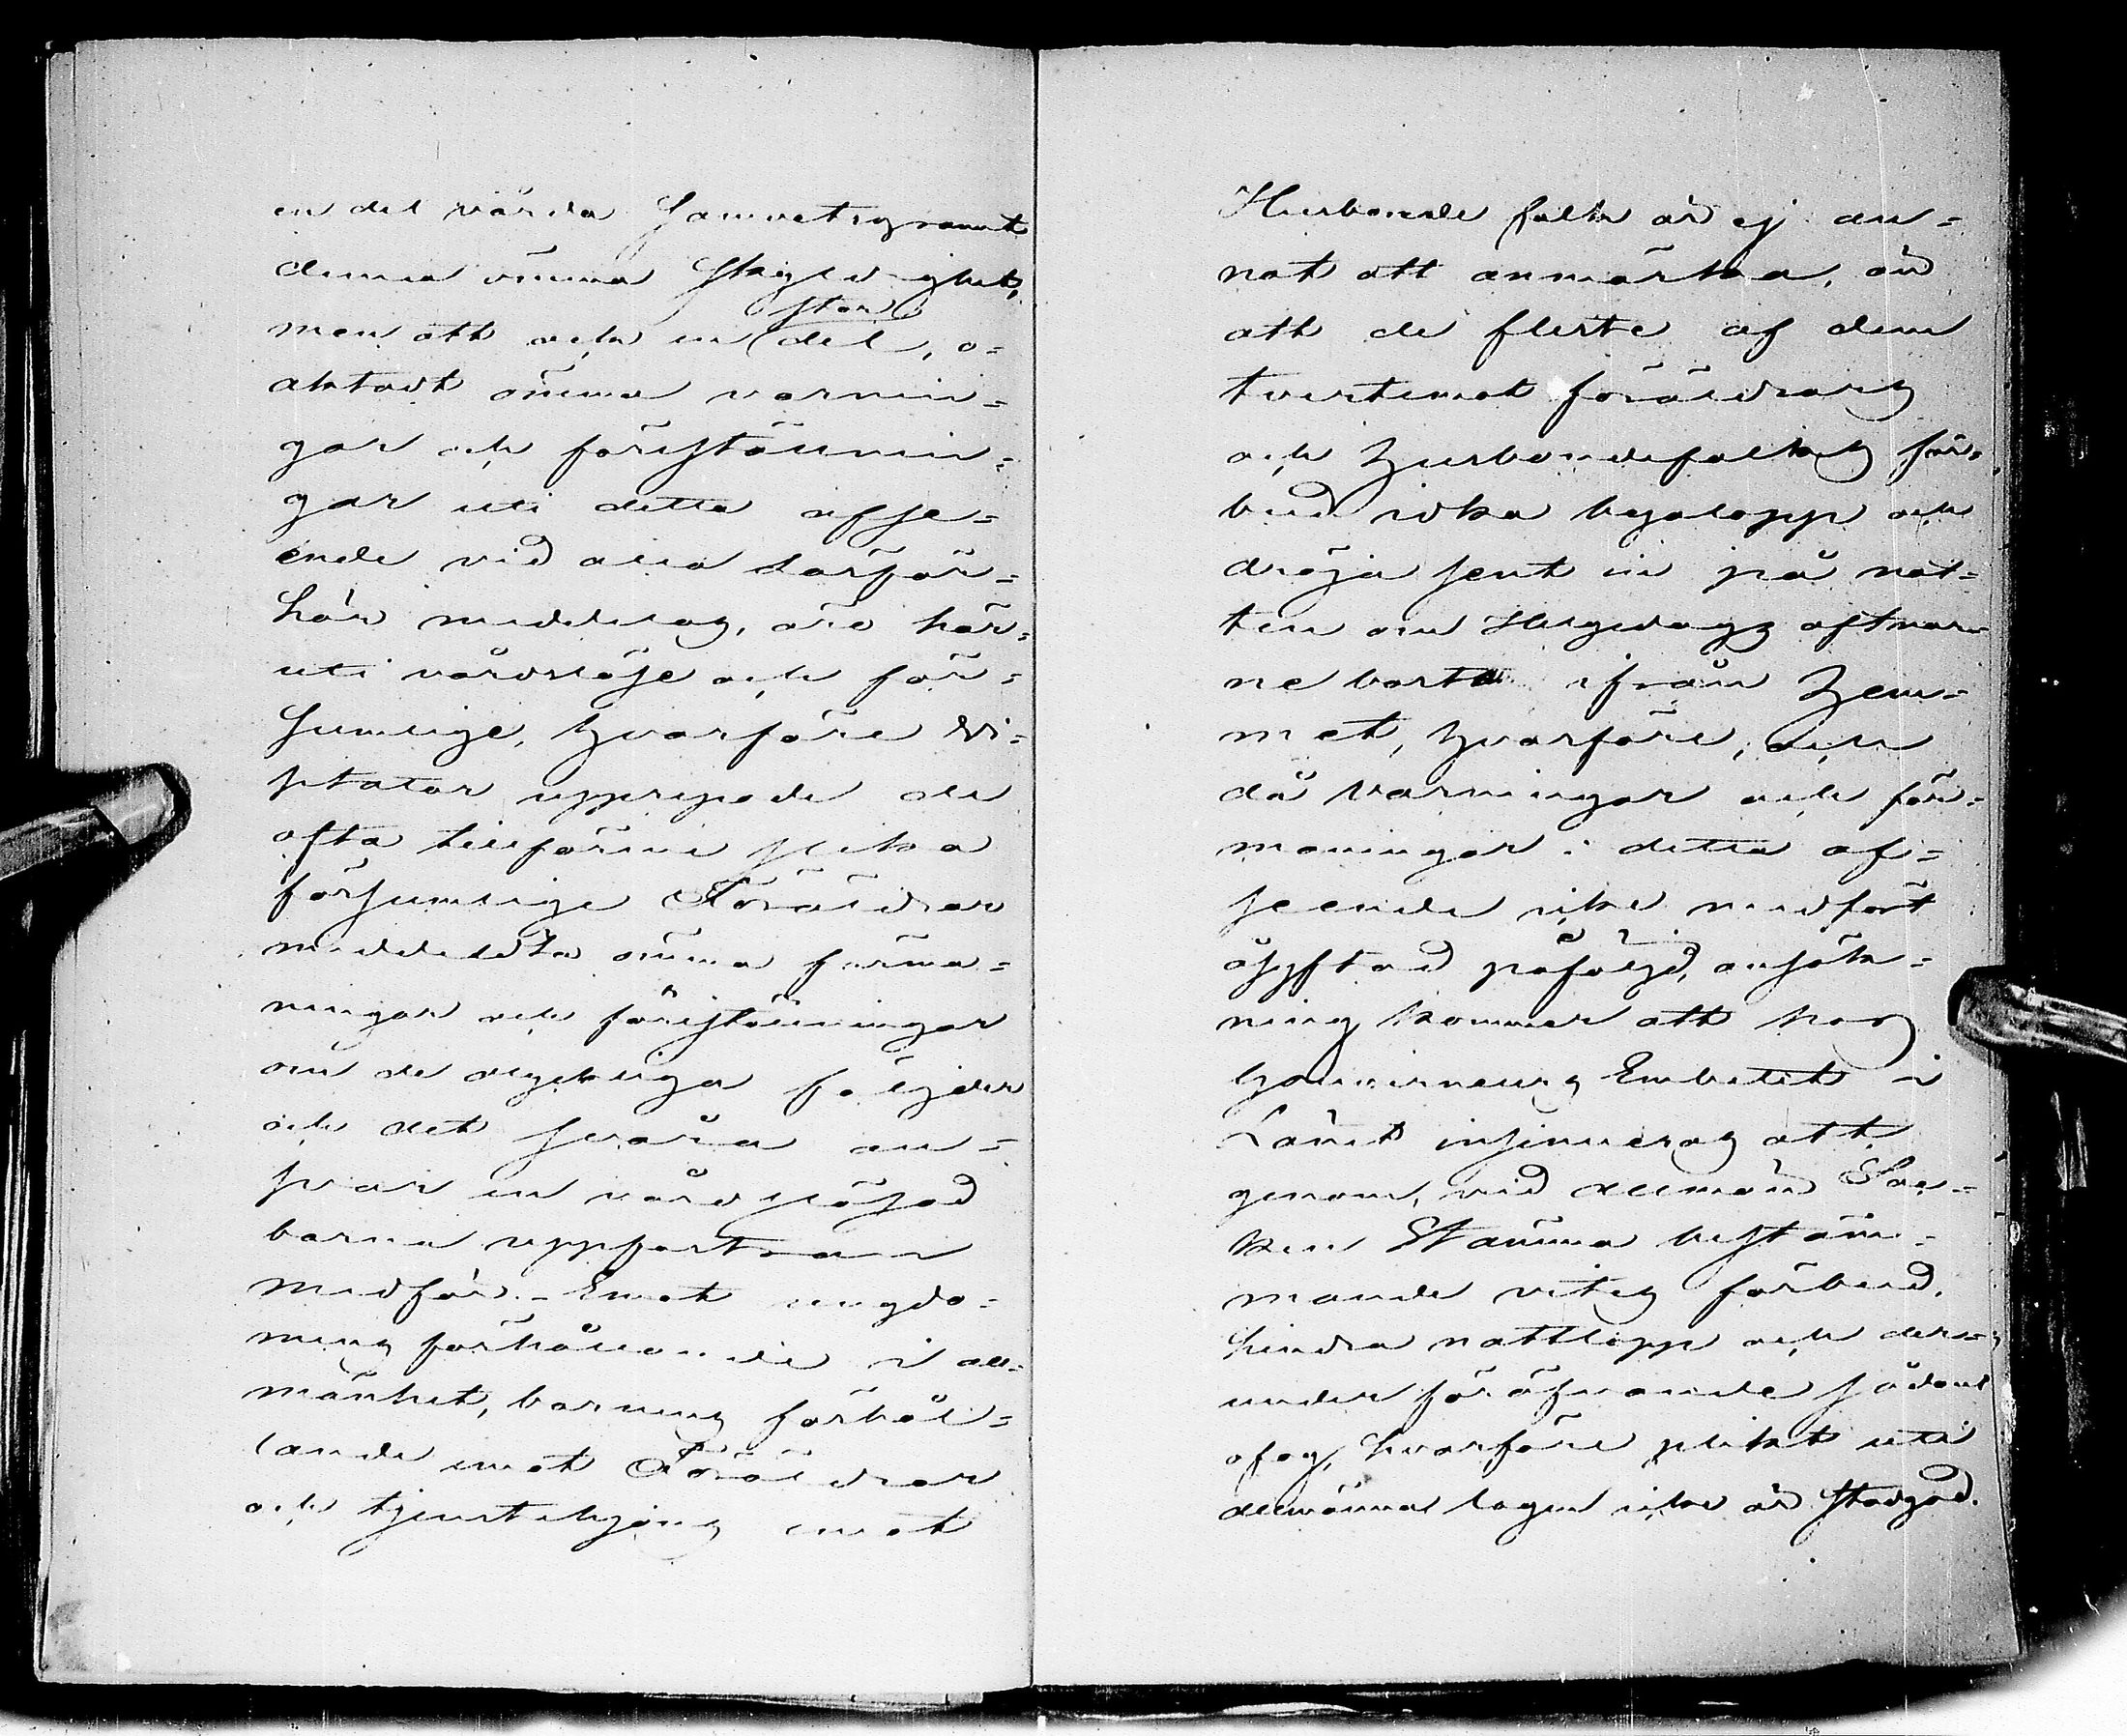 en del vårda samvetsgrannt
denna ömma skyldighet,
stor
men att och en del, o-
aktadt ömma varnin-
gar och föreställnin-
gar uti detta afse-
ende vid alla Läsför-
hör meddelas, äro här-
uti vårdslöse och för-
sumlige, hvarföre Vi-
sitator upprepade de
ofta tillförene slika
försumlige Föräldrar
meddelta ömma förma-
ningar och föreställningar
om de olyckliga följder
och det svåra an-
svar en vårdslösad
barna uppfostran
medför. - Emot ungdo-
mens förhållande i all-
mänhet, barnens förhål-
lande emot Föräldrar
och tjenstehjons emot
Husbonde folk är ej an-
nat att anmärka, än
att de fleste af dem
tvertemot föräldrars
och husbondefolkets för-
bud idka byalopp och
dröja sent in på nat-
ten om Helgedags aftnar-
ne borta ifrån hem-
met, hvarföre, och
då varningar och för-
maningar i detta af-
seende icke medfört
åsyftad påföljd, ansök-
ning kommer att hos
Gouverneurs Embetet i
Länet insinueras att
genom, vid allmän Soc-
ken Stämma bestäm-
mande vites förbud,
hindra nattlopp och der-
under föröfvande sådant
ofog, hvarföre plikt uti
allmänna lagen icke är stadgad.